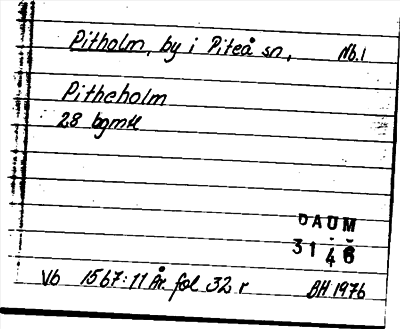 Pitholm, by i Piteå sn, Nb.l
Pitheholm
28 bgmtl
DAUM
3146
Vb 1567:11 År. fol 32 r BH 1976